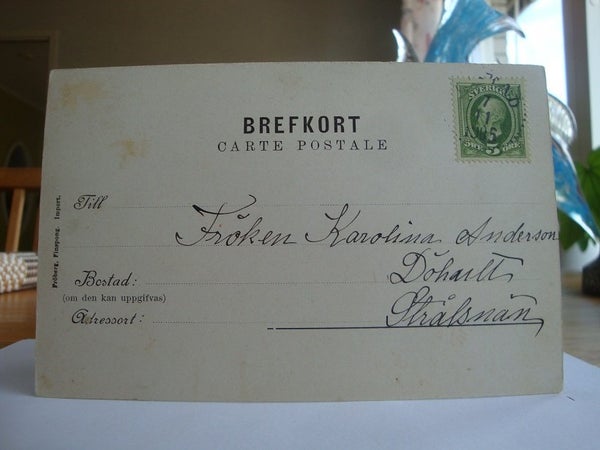 BREFKORT
CARTE POSTALE
SVERIGE
5
ÖRE
Till
Fröken Karolina Anderson
Bostad:
(om den kan uppgifvas)
Döhult
Adressort:
Strålsnän
Fröberg. Finspong. Import.